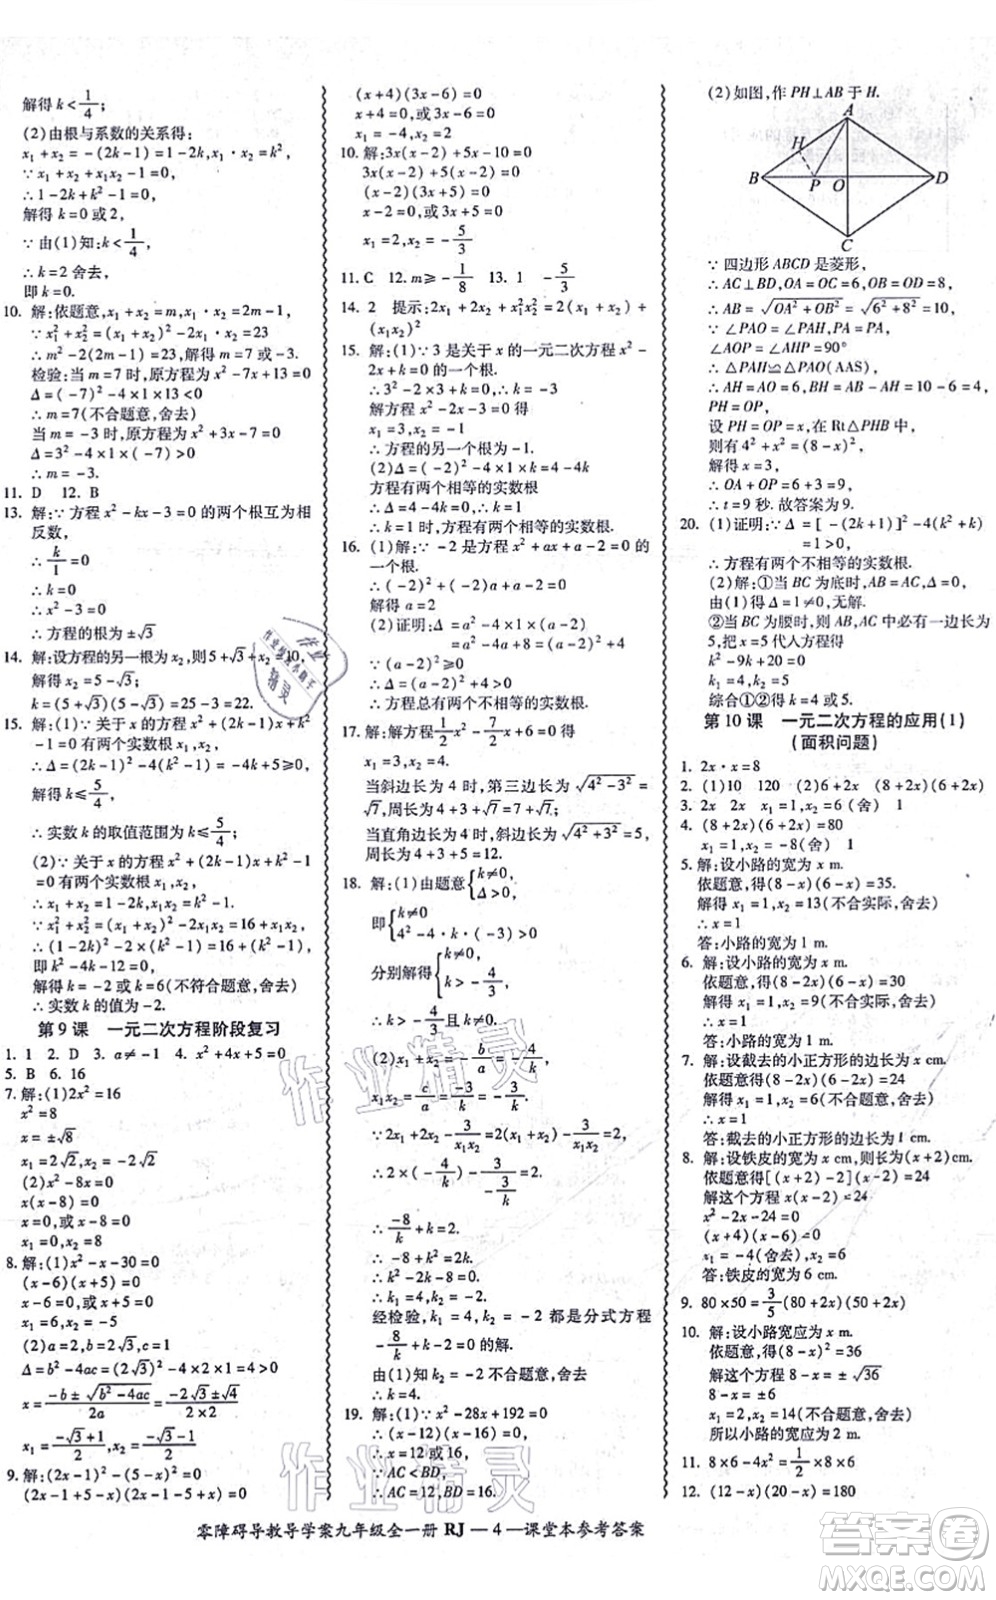 解得 k<1/4;
(2)由根与系数的关系得:
x₁+x₂=-(2k-1)=1-2k,x₁·x₂=k².
∵x₁+x₂+x₁x₂-1=0,
∴1-2k+k²-1=0,
解得 k=0 或 2,
∵由(1)知:k<1/4,
∴k=2 舍去,
即 k=0.
10. 解:依题意,x₁+x₂=m,x₁x₂=2m-1,
∵x₁²+x₂²=(x₁+x₂)²-2x₁x₂=23
∴m²-2(2m-1)=23,解得 m=7 或-3
检验:当 m=7 时,原方程为 x²-7x+13=0
Δ=(-7)²-4×1×13<0
∴m=7(不合题意,舍去)
当 m=-3 时,原方程为 x²+3x-7=0
Δ=3²-4×1×(-7)>0
∴m=-3.
11. D 12. B
13. 解:∵方程 x²-kx-3=0 的两个根互为相
反数,
∴k/1=0
∴k=0
∴x²-3=0
∴方程的根为±√3
14. 解:设方程的另一根为 x₂,则 5+√3+x₂=10,
解得 x₂=5-√3,
k=(5+√3)(5-√3)=25-3=22.
15. 解:(1)∵关于 x 的方程 x²+(2k-1)x+k²-1=
0 有两个实数根 x₁,x₂,
∴Δ=(2k-1)²-4(k²-1)=-4k+5≥0,
解得 k≤5/4,
∴实数 k 的取值范围为 k≤5/4;
(2)∵关于 x 的方程 x²+(2k-1)x+k²-1=
0 有两个实数根 x₁,x₂,
∴x₁+x₂=1-2k,x₁·x₂=k²-1.
∵x₁²+x₂²=(x₁+x₂)²-2x₁x₂=16+x₁x₂,
∴(1-2k)²-2×(k²-1)=16+(k²-1),
即 k²-4k-12=0,
解得 k=-2 或 k=6(不符合题意,舍去)
∴实数 k 的值为-2.
第 9 课 一元二次方程阶段复习
1. 1 2. D 3. a≠-1 4. x²+4x+3=0
5. B 6. 16
7. 解:(1)2x²=16
x²=8
x=±√8
x₁=2√2,x₂=-2√2
(2)x²-8x=0
x(x-8)=0
x=0,或 x-8=0
x₁=0,x₂=8
8. 解:(1)x²-x-30=0
(x-6)(x+5)=0
x-6=0 或 x+5=0
x₁=6,x₂=-5
(2)a=2,b=2√3,c=1
Δ=b²-4ac=12-4×2×1=4>0
x=(-b±√(b²-4ac))/2a=(-2√3±√4)/(2×2)
x₁=(-√3+1)/2,x₂=(-√3-1)/2
9. 解:(2x-1)²-(5-x)²=0
(2x-1+5-x)(2x-1-5+x)=0
(x+4)(3x-6)=0
x+4=0,或 3x-6=0
x₁=-4,x₂=2
10. 解:3x(x-2)+5x-10=0
3x(x-2)+5(x-2)=0
(x-2)(3x+5)=0
x-2=0,或 3x+5=0
x₁=2,x₂=-5/3
11. C 12. m≥-1/8 13. 1 -5/3
14. 2 提示:2x₁+2x₂+x₁²x₂²=2(x₁+x₂)+
(x₁x₂)²
15. 解:(1)∵3 是关于 x 的一元二次方程 x²-
2x+k=0 的一个根.
∴3²-2×3+k=0,∴k=-3
解方程 x²-2x-3=0 得
x₁=3,x₂=-1
∴方程的另一个根为-1.
(2)Δ=(-2)²-4×1×k=4-4k
方程有两个相等的实数根
∴Δ=4-4k=0,∴k=1
∴k=1 时,方程有两个相等的实数根.
16. (1)解:∵-2 是方程 x²+ax+a-2=0 的
一个根.
∴(-2)²+(-2)a+a-2=0
解得 a=2
(2)证明:Δ=a²-4×1×(a-2)
=a²-4a+8=(a-2)²+4
∵(a-2)²≥0
∴Δ=(a-2)²+4>0
∴方程总有两个不相等的实数根.
17. 解:解方程1/2x²-7/2x+6=0 得
x₁=3,x₂=4.
当斜边长为 4 时,第三边长为√(4²-3²)=
√7,周长为 4+3+√7=7+√7;
当直角边长为 4 时,斜边长为√(4²+3²)=5,
周长为 4+3+5=12.
18. 解:(1)由题意{k≠0 Δ>0,
即{k≠0 4²-4·k·(-3)>0,
分别解得{k≠0 k>-4/3,
∴k>-4/3且 k≠0
(2)x₁+x₂=-b/a=-4/k,
x₁x₂=c/a=-3/k
∵2x₁+2x₂-3/(x₁x₂)=2(x₁+x₂)-3/(x₁x₂)
∴2×(-4/k)-3/(-3/k)=2
∴-8/k+k=2.
∴-8+k²=2k
∴k₁=4,k₂=-2
经检验,k₁=4,k₂=-2 都是分式方程
-8/k+k=2 的解.
由(1)可知 k=-2 不合题意,舍去
∴k=4.
19. 解:(1)∵x²-28x+192=0
∴(x-12)(x-16)=0
∴x=12 或 16,
∵AC<BD,
∴AC=12,BD=16.
(2)如图,作 PH⊥AB 于 H.
A
H
B P O D
C
∵四边形 ABCD 是菱形,
∴AC⊥BD,OA=OC=6,OB=8,
∴AB=√(OA²+OB²)=√(6²+8²)=10
∵∠PAO=∠PAH,PA=PA,
∠AOP=∠AHP=90°
∴△PAH≌△PAO(AAS)
∴AH=AO=6,BH=AB-AH=10-6=4,
设 PH=OP=x,在 Rt△PHB 中
则有 4²+x²=(8-x)²
解得 x=3,
∴OA+OP=6+3=9,
∴t=9 秒.故答案为 9.
20. (1)证明:∵Δ=[-(2k+1)]²-4(k²+k)
=1>0,
∴方程有两个不相等的实数根.
(2)解:①当 BC 为底时,AB=AC,Δ=0,
由(1)得 Δ=1>0,无解;
②当 BC 为腰时,AB,AC 有一边长为
5,把 x=5 代入方程得
k²-9k-20=0
k₁=4,k₂=5
综合①②得 k=4 或 5.
第 10 课 一元二次方程的应用(1)
(面积问题)
1. 2x·x=8
2. (1)10 120 (2)6+2x (8+2x)(6+2x)
3. 2x 2x x₁=1,x₂=-8(舍) 1
4. (8+2x)(6+2x)=80
x₁=1,x₂=-8(舍) 1
5. 解:设小路的宽为 x m.
依题意,得(8-x)(6-x)=35.
解得 x₁=1,x₂=13(不合实际,舍去)
∴x=1
答:小路的宽为 1 m.
6. 解:设小路的宽为 x m.
依题意,得(8-2x)(6-x)=30
解得 x₁=1,x₂=9(不合实际,舍去)
∴x=1
答:小路的宽为 1 m.
7. 解:设截去的小正方形的边长为 x cm.
依题意得(8-2x)(6-2x)=24
解得 x₁=1,x₂=6(不合实际,舍去)
∴x=1
答:截去的小正方形的边长为 1 cm.
8. 解:设铁皮的宽为 x cm,则长为(x+2)cm.
依题意得[(x+2)-2](x-2)=24
解这个方程 x(x-2)=24
x²-2x-24=0
(x-6)(x+4)=0
x₁=-4(舍去),x₂=6
答:铁皮的宽为 6 cm.
9. 80×50=3/5(80+2x)(50+2x)
10. 解:设小路宽应为 x m.
依题意,得(8-x)²=36
解这个方程(8-x)²=36
8-x=±6
x₁=2,x₂=14(不合题意,舍去)
所以小路的宽应为 2 m.
11. 8×6-4x²=1/2×8×6
12. (20-x)(10-x)=180
零障碍导教导学案九年级全一册 RJ — 4 —课堂本参考答案
作业精灵
作业精灵
答案圈
MXQE.COM